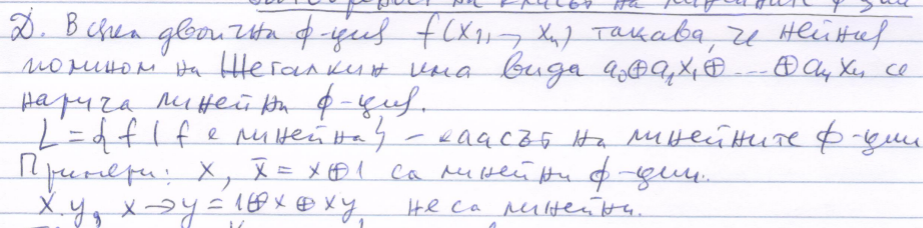 Д. Всяка двоична ф-ция f(x₁, ..., xₙ) такава, че нейния
полином на Жегалкин има вида a₀⊕a₁x₁⊕ ... ⊕aₙxₙ се
нарича линейна ф-ция.
L = {f | f е линейна} – класът на линейните ф-ции
Примери: x, x̄ = x⊕1 са линейни ф-ции.
x.y, x→y = 1⊕x⊕xy, не са линейни.